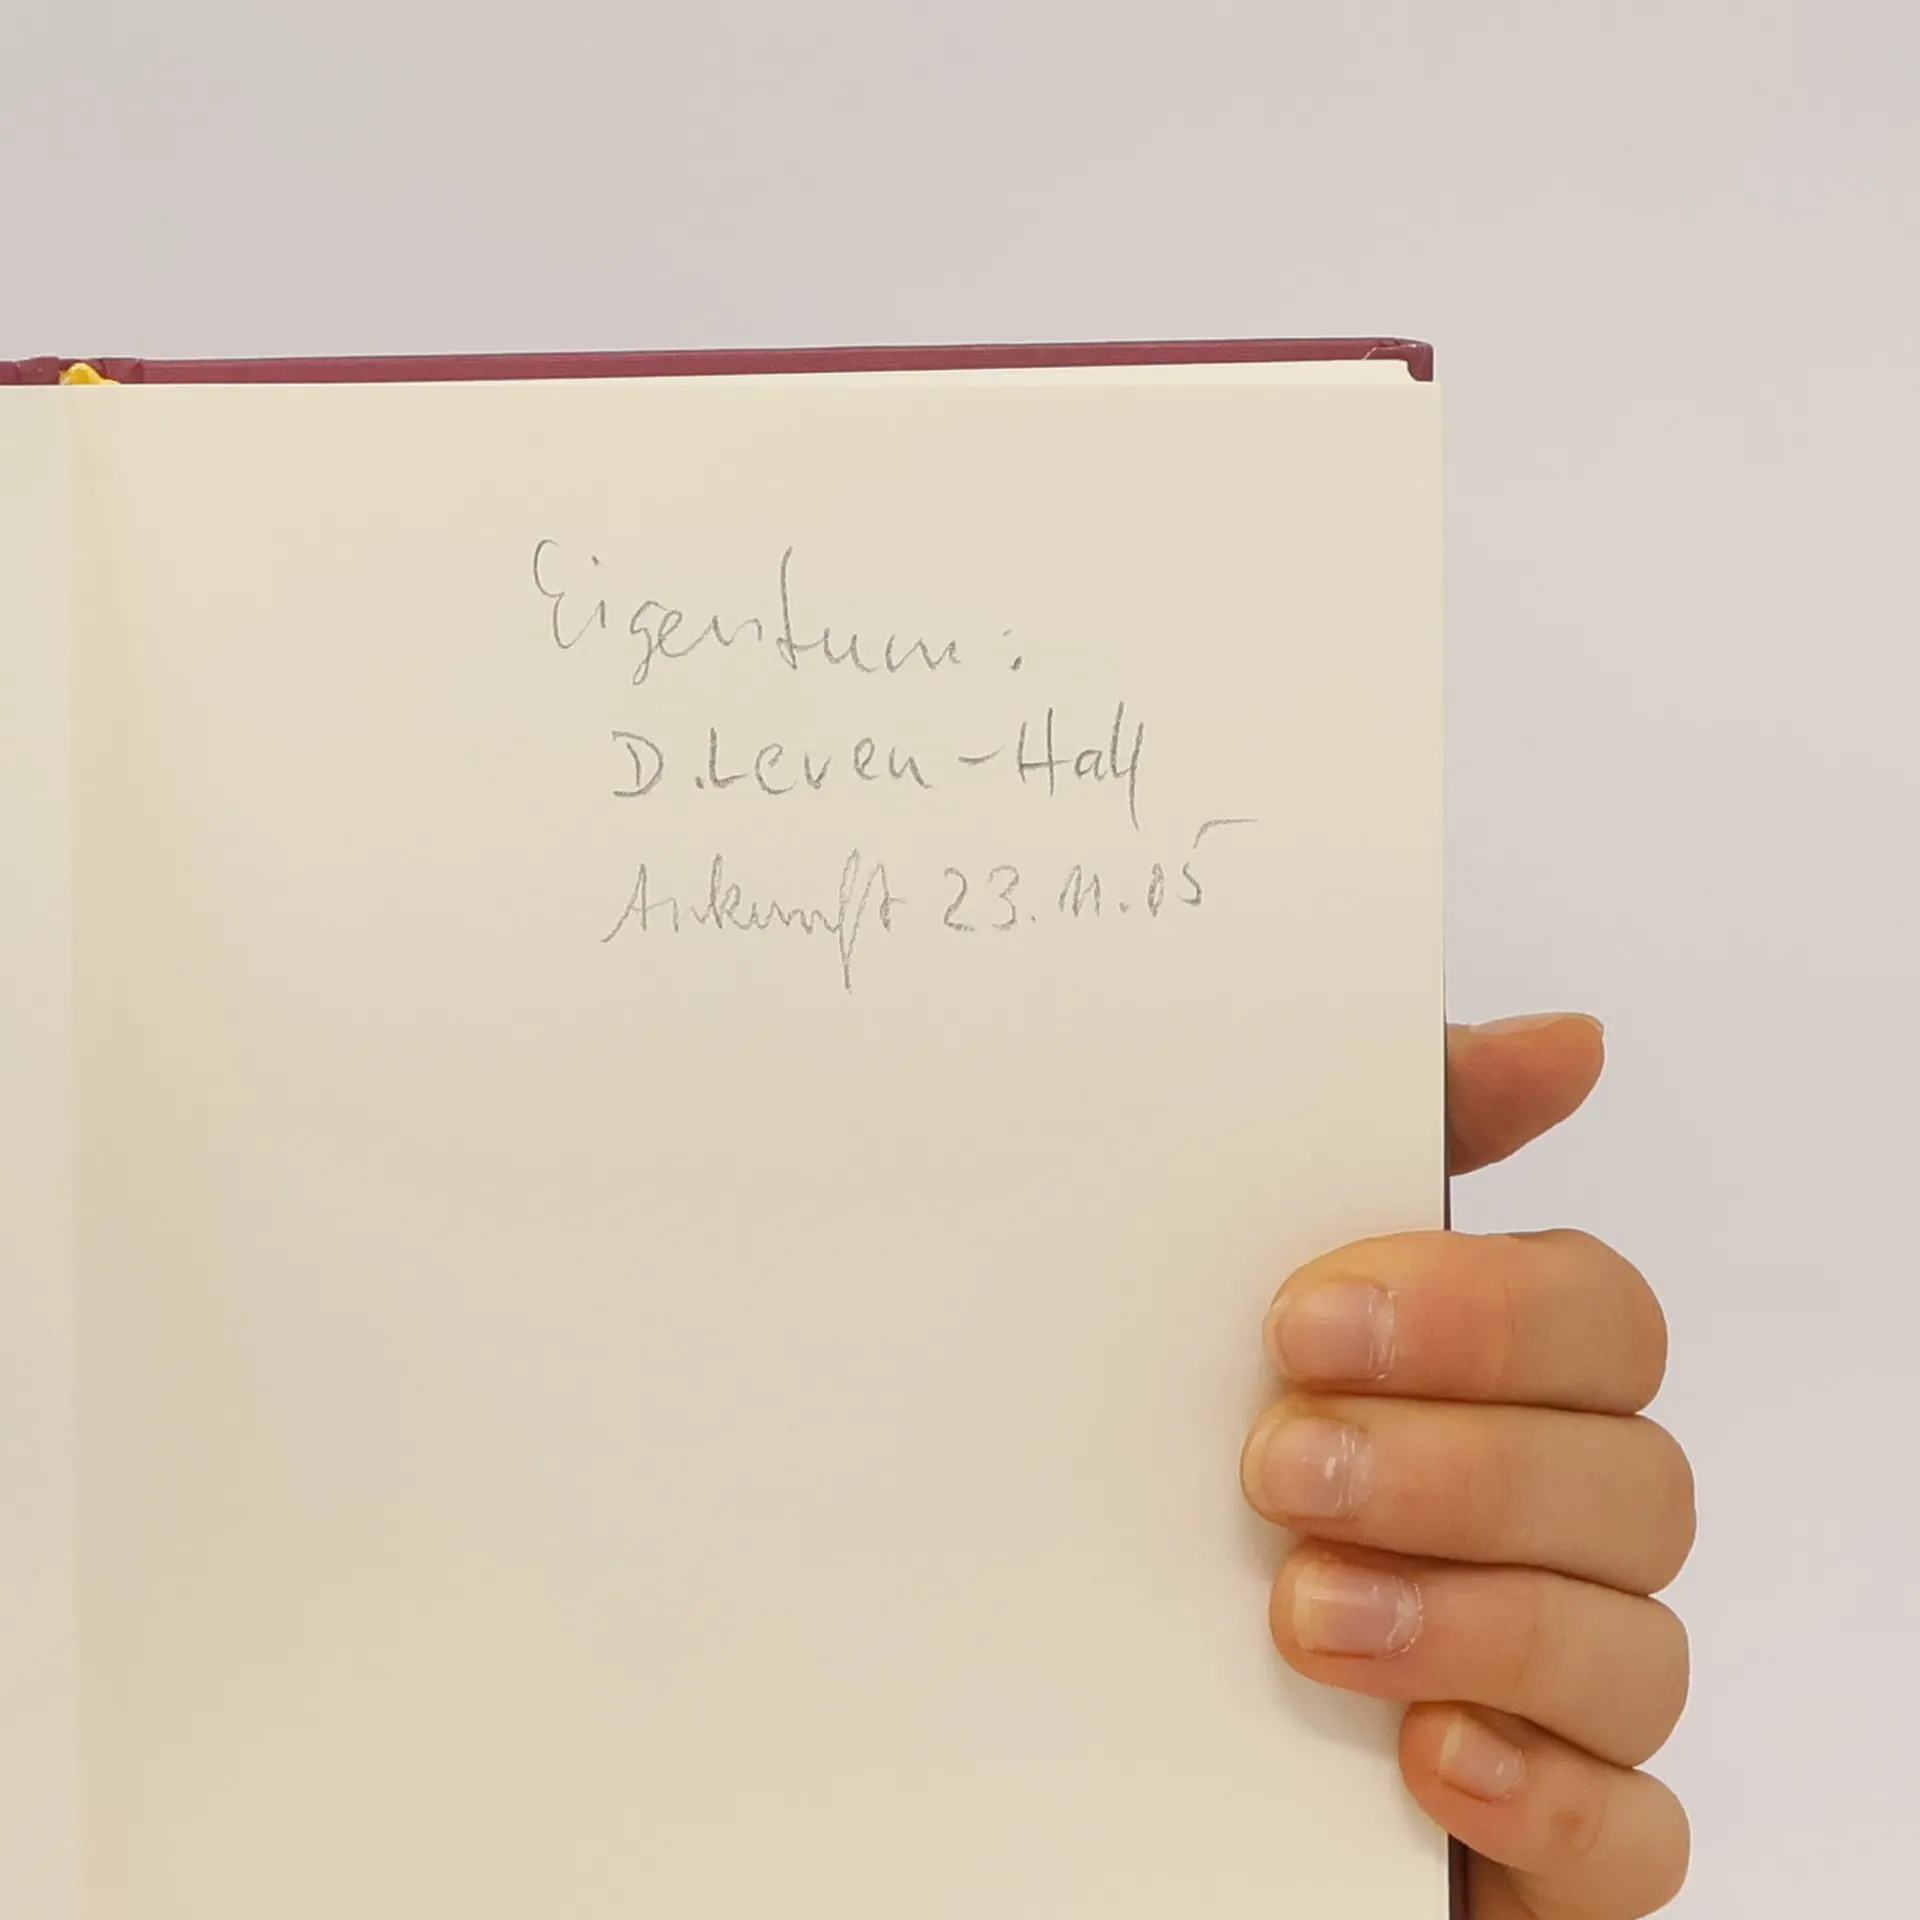 Eigentum:
D. Leven-Hall
Ankunft 23.11.05